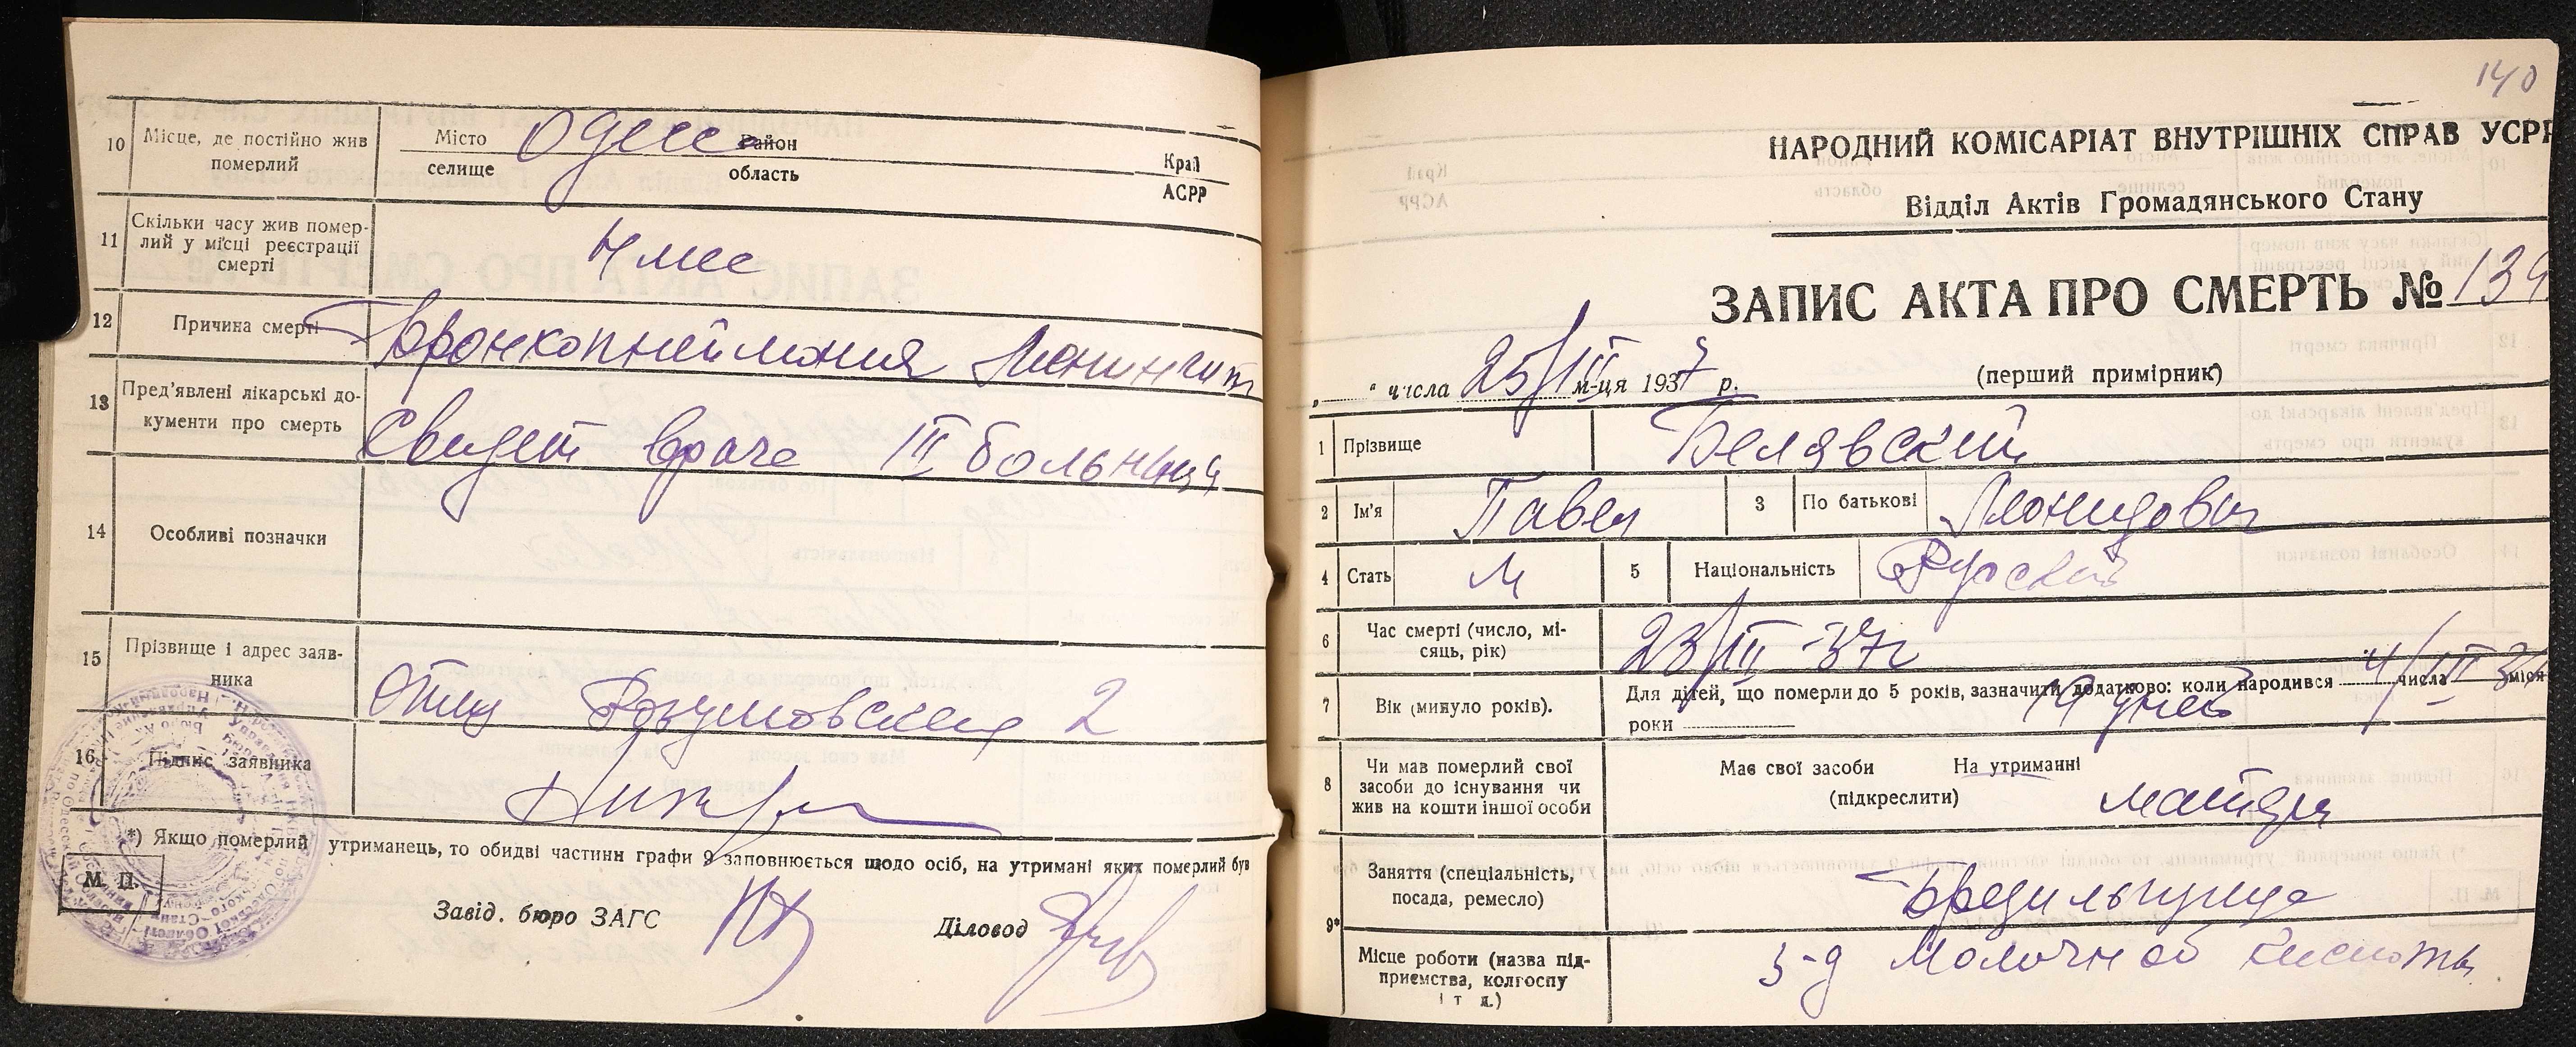 10 Місце, де постійно жив померлий
Місто Одесса район Край
селище область АСРР
11 Скільки часу жив помер-
лий у місці реєстрації
смерті
12 Причина смерті Бронхопнеймония Менингит
13 Пред'явлені лікарські до-
кументи про смерть
Свидет врача III больница
14 Особливі позначки
15 Прізвище і адрес заяв-
ника
Отец Разумовская 2
16 Підпис заявника
*) Якщо померлий утриманець, то обидві частини графи 9 заповнюється щодо осіб, на утримані яких померлий був
М. П.
Завід. бюро ЗАГС Діловод
140
НАРОДНИЙ КОМІСАРІАТ ВНУТРІШНІХ СПРАВ УСРР
Відділ Актів Громадянського Стану
ЗАПИС АКТА ПРО СМЕРТЬ №
„ “ числа 25/III м-ця 1937 р. (перший примірник)
1 Прізвище Белявский
2 Ім'я Павел 3 По батькові Леонидович
4 Стать М 5 Національність Русский
6 Час смерті (число, мі-
сяць, рік)
23/III-37г
7 Вік (минуло років).
Для дітей, що померли до 5 років, зазначити додатково: коли народився 4/III 37 числа міся
роки 19 дней
8 Чи мав померлий свої
засоби до існування чи
жив на кошти іншої особи
Має свої засоби На утриманні
(підкреслити) матери
9* Заняття (спеціальність,
посада, ремесло)
Бредильщица
Місце роботи (назва під-
приємства, колгоспу
і т д.)
З-д Молочной кислоты